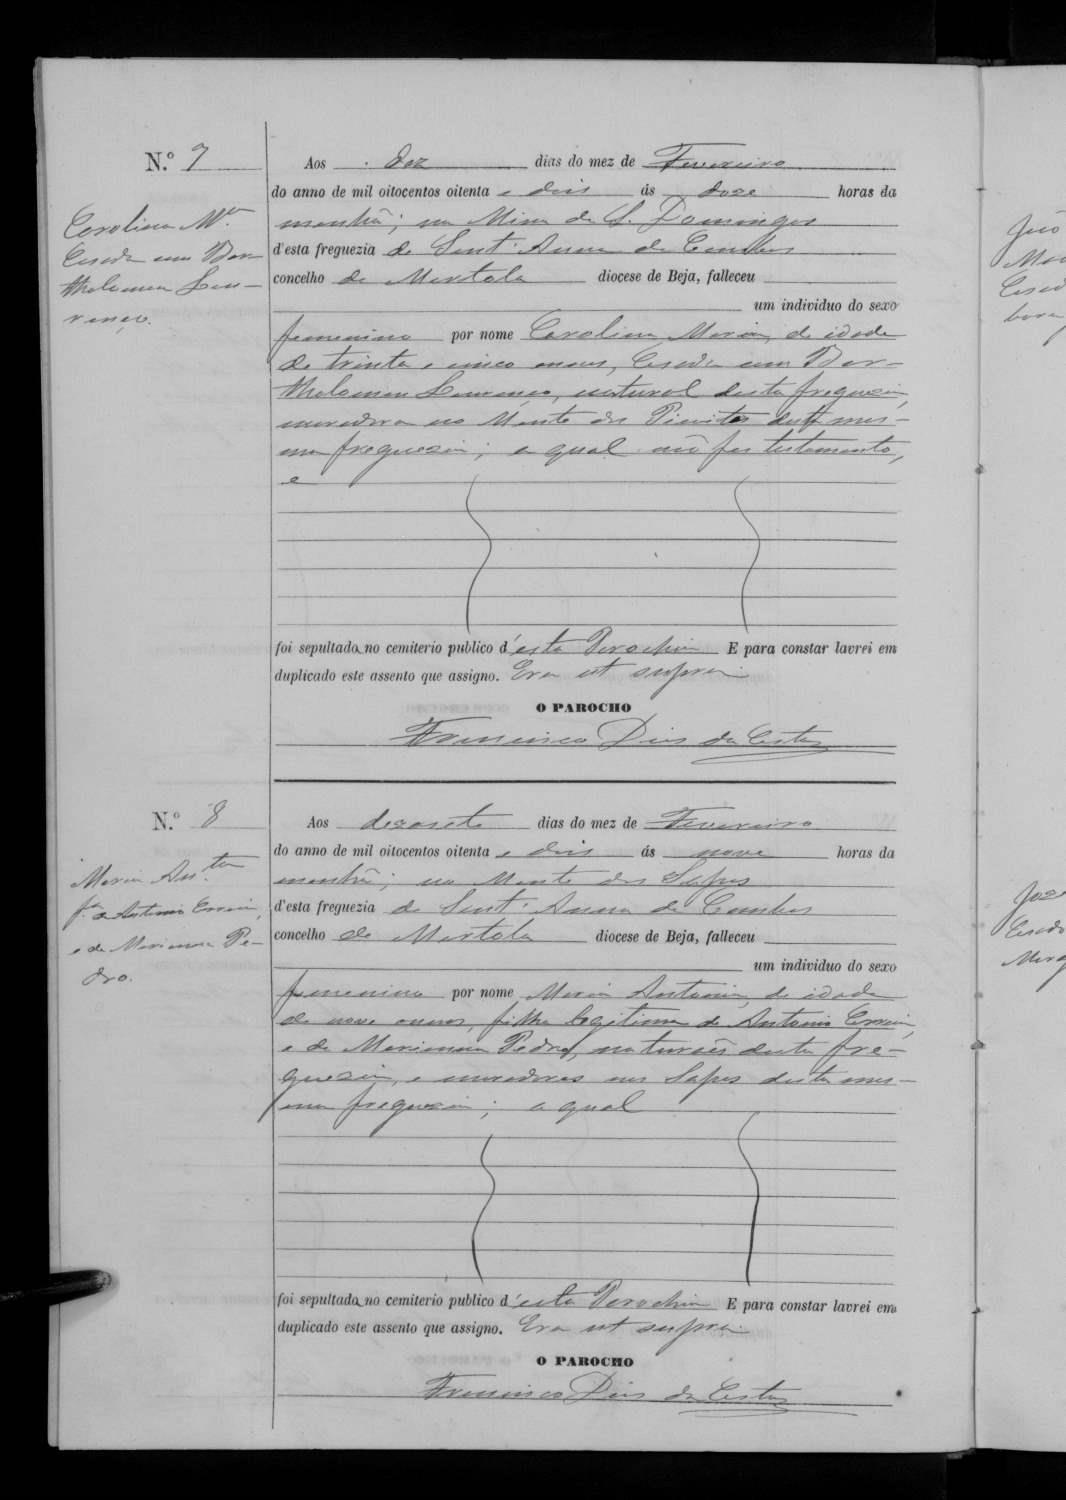 N.º 7
Carolina M.ª
Casada com Bar-
tholomeu Lou-
renço.
Aos dez dias do mez de Fevereiro
do anno de mil oitocentos oitenta e dois ás doze horas da
manhã; na Mina de S. Domingos
d'esta freguezia de Sant'Anna de Cambas
concelho de Mertola diocese de Beja, falleceu
um individuo do sexo
femenino por nome Carolina Maria, de idade
de trinta e cinco annos, Casada com Bar-
tholomeu Lourenço, natural desta freguezia,
moradora no Monte dos desta mes-
ma freguezia; a qual não fez testamento,
e
foi sepultada no cemiterio publico d'esta Parochia E para constar lavrei em
duplicado este assento que assigno. Era ut supra.
O PAROCHO
Francisco Dias da Costa
N.º 8
Maria An.ta
f.ª de Antonio
e de Marianna Pe-
dro.
Aos dezasete dias do mez de Fevereiro
do anno de mil oitocentos oitenta e dois ás nove horas da
manhã; no Monte dos Sapos
d'esta freguezia de Sant'Anna de Cambas
concelho de Mertola diocese de Beja, falleceu
um individuo do sexo
femenino por nome Maria Antonia, de idade
de nove annos, filha legitima de Antonio
e de Marianna Pedro, naturaes desta fre-
guezia, e moradores nos Sapos desta mes-
ma freguezia; a qual
foi sepultada no cemiterio publico d'esta Parochia E para constar lavrei em
duplicado este assento que assigno. Era ut supra.
O PAROCHO
Francisco Dias da Costa